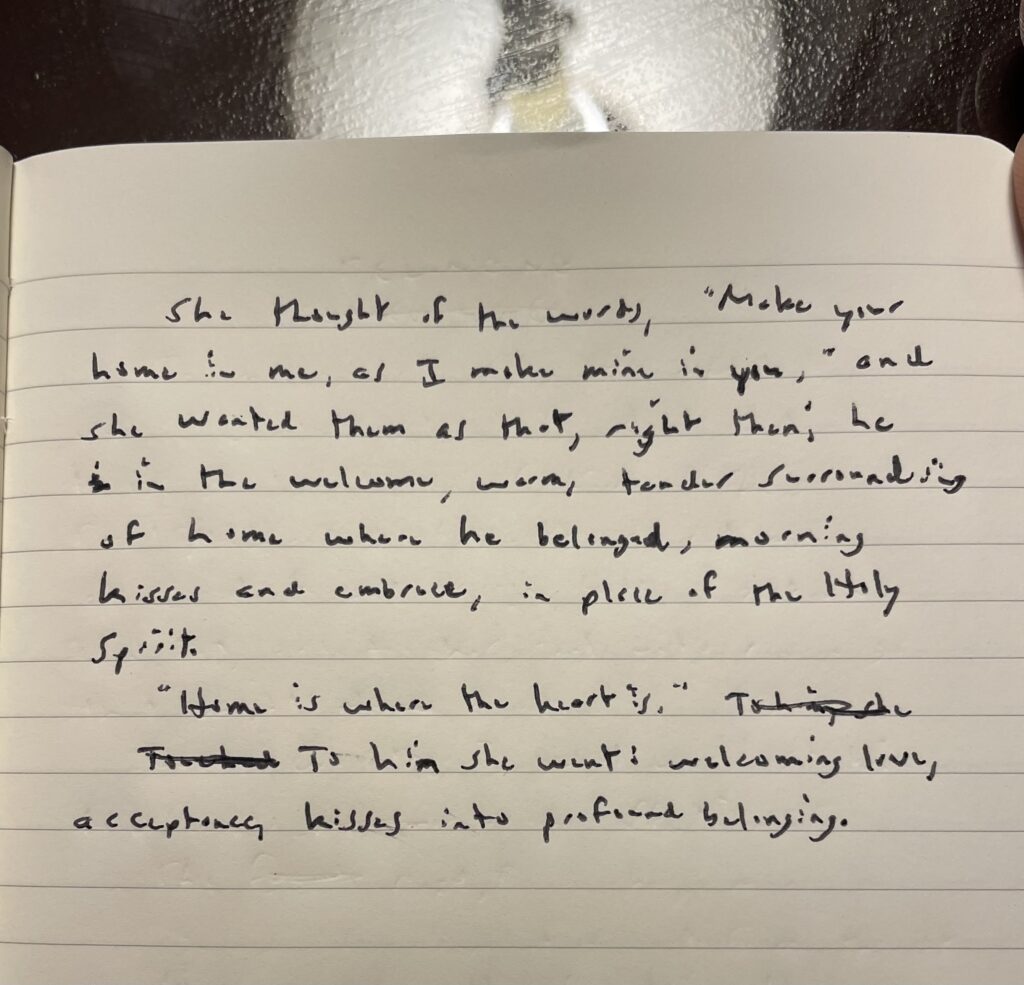 She thought of the words, "Make your
home in me, as I make mine in you," and
she wanted them as that, right then; he
in the welcome, warm, tender surrounding
of home where he belonged, morning
kisses and embrace, in place of the Holy
Spirit.
"Home is where the heart is." To him she
Touched To him she went: welcoming love,
acceptance, kisses into profound belonging.